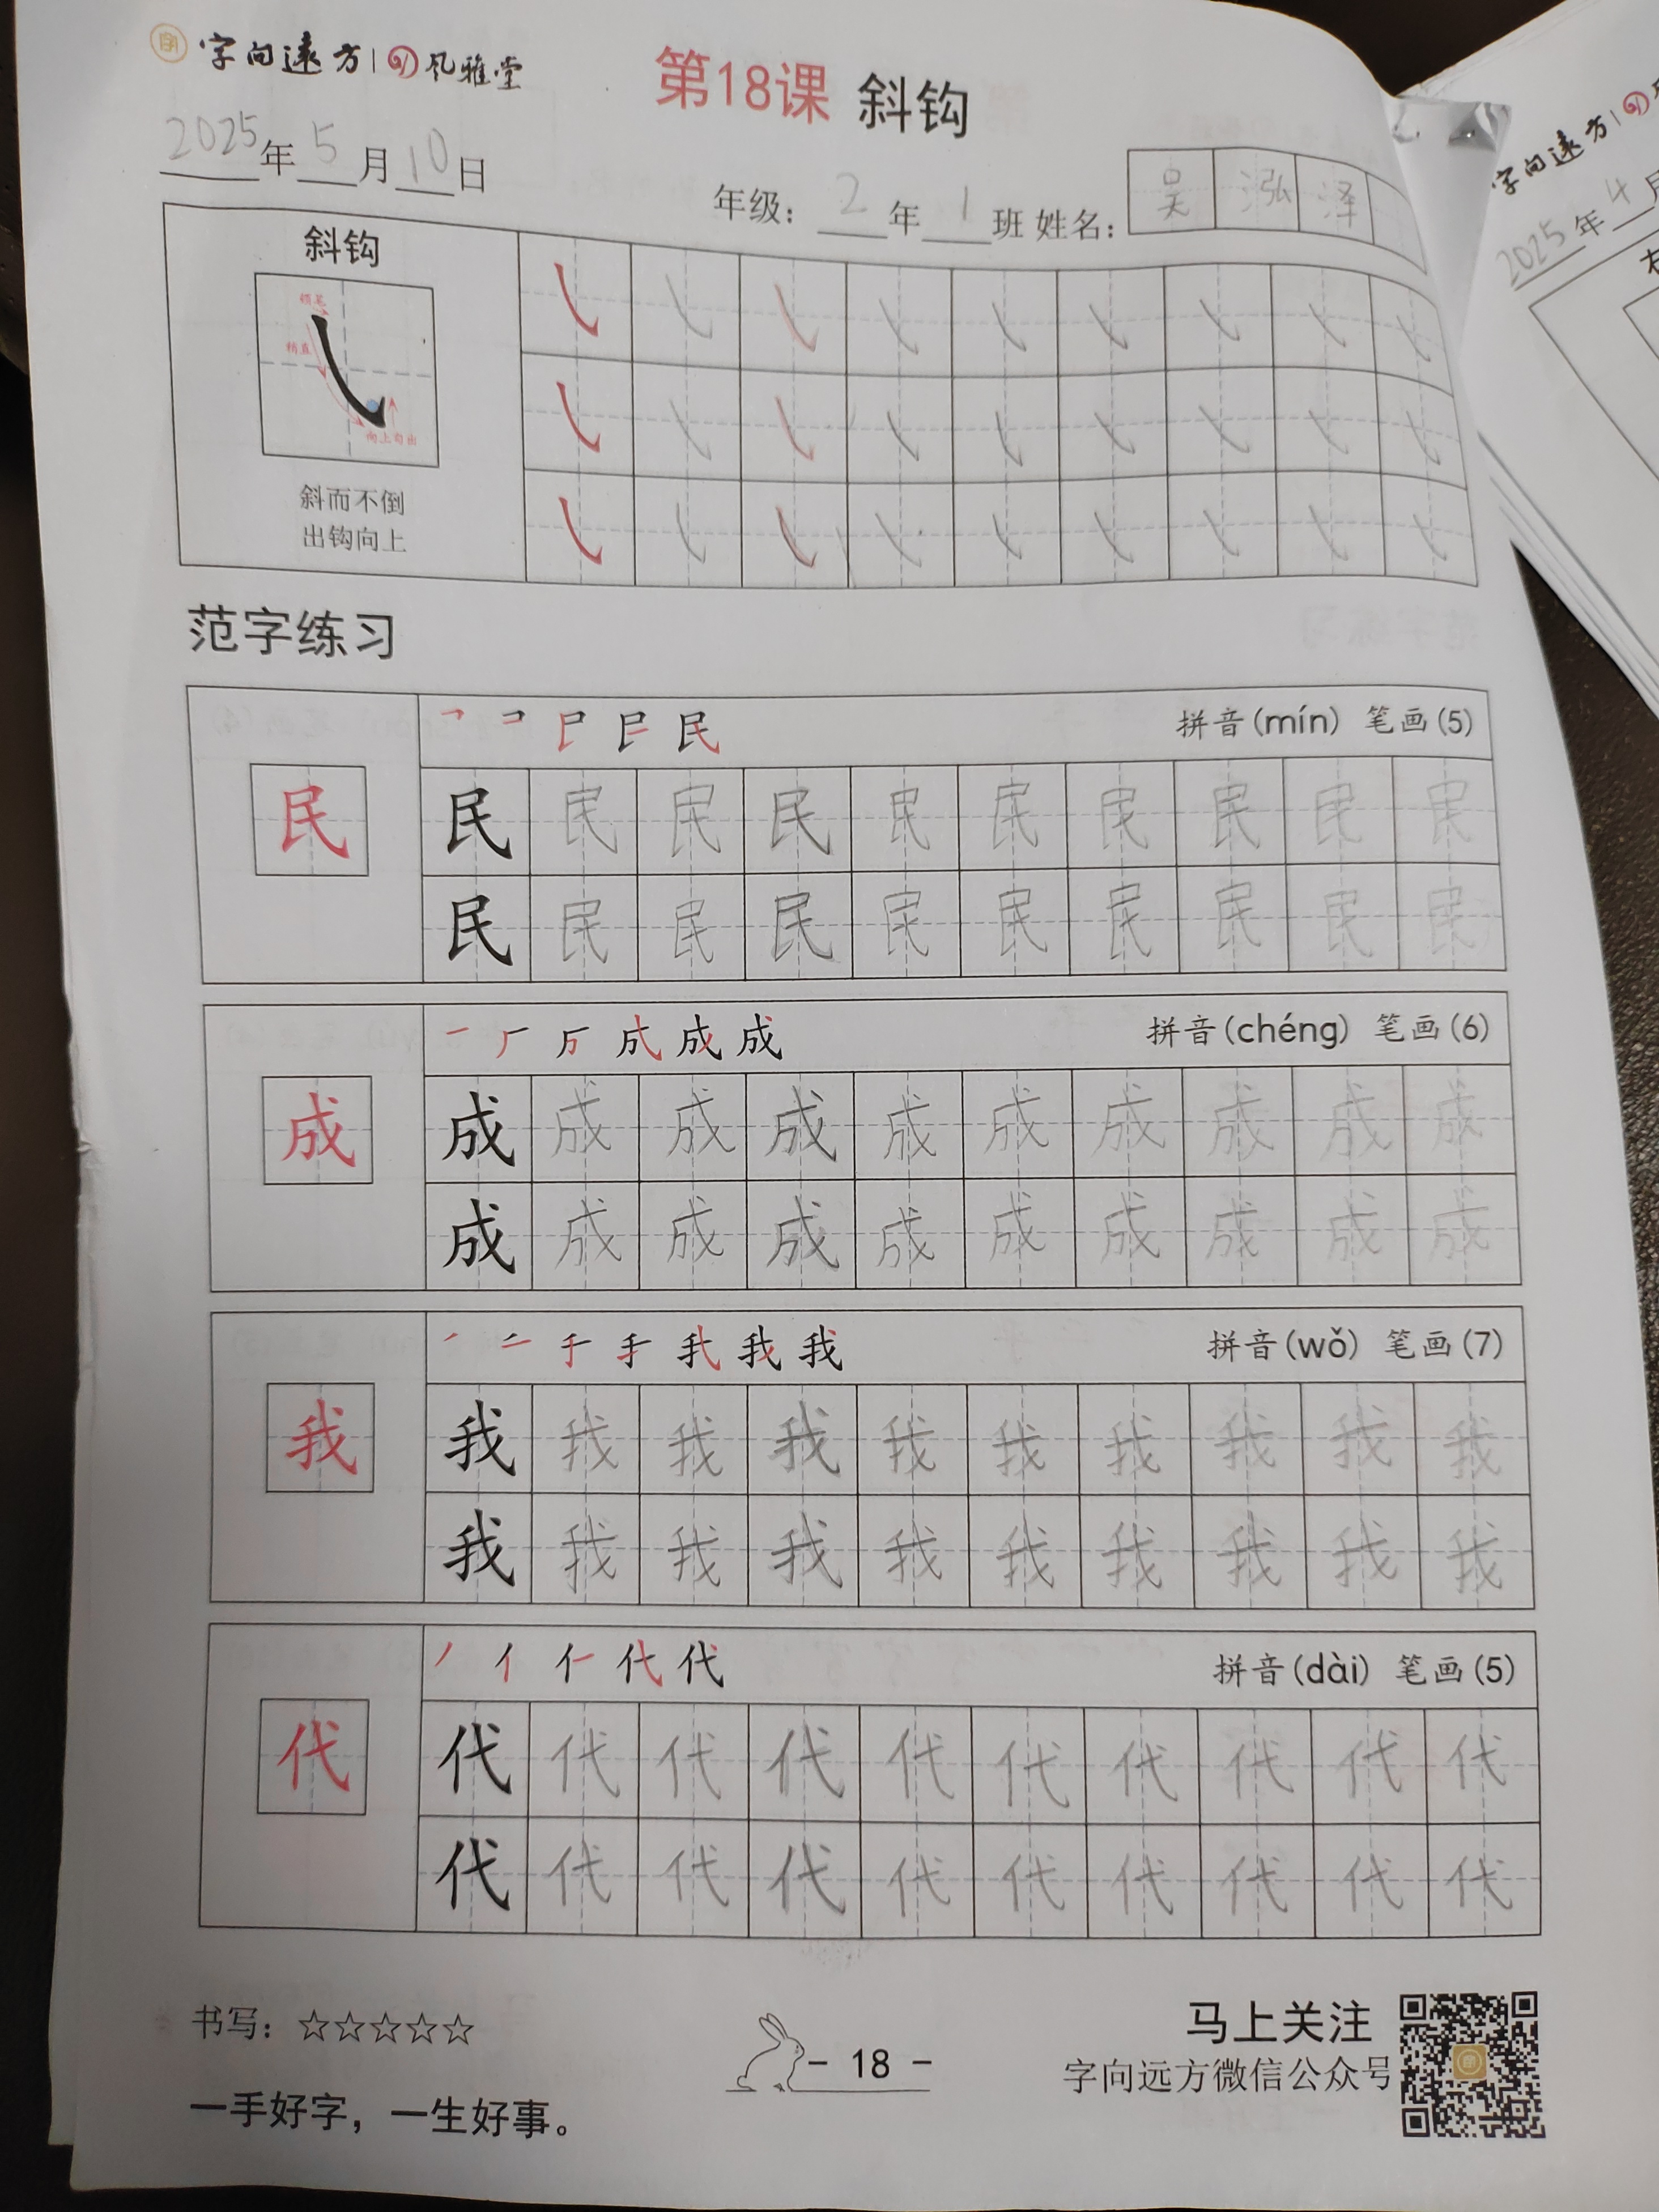 字向遠方 | 风雅堂
第18课 斜钩
2025年5月10日
年级：2年1班 姓名：吴泓泽
斜钩
顿笔
稍直
向上勾出
斜而不倒
出钩向上
范字练习
拼音(mín) 笔画(5)
民 民 民 民 民 民 民 民 民 民 民
民 民 民 民 民 民 民 民 民 民
成 成 成 拼音(chéng) 笔画(6)
成 成 成 成 成 成 成 成 成 成 成
成 成 成 成 成 成 成 成 成 成
我 拼音(wǒ) 笔画(7)
我 我 我 我 我 我 我 我 我 我 我
我 我 我 我 我 我 我 我 我 我
代 拼音(dài) 笔画(5)
代 代 代 代 代 代 代 代 代 代 代
代 代 代 代 代 代 代 代 代 代
书写：☆☆☆☆☆
一手好字，一生好事。
- 18 -
马上关注
字向远方微信公众号
字向遠方 |
2025年4月